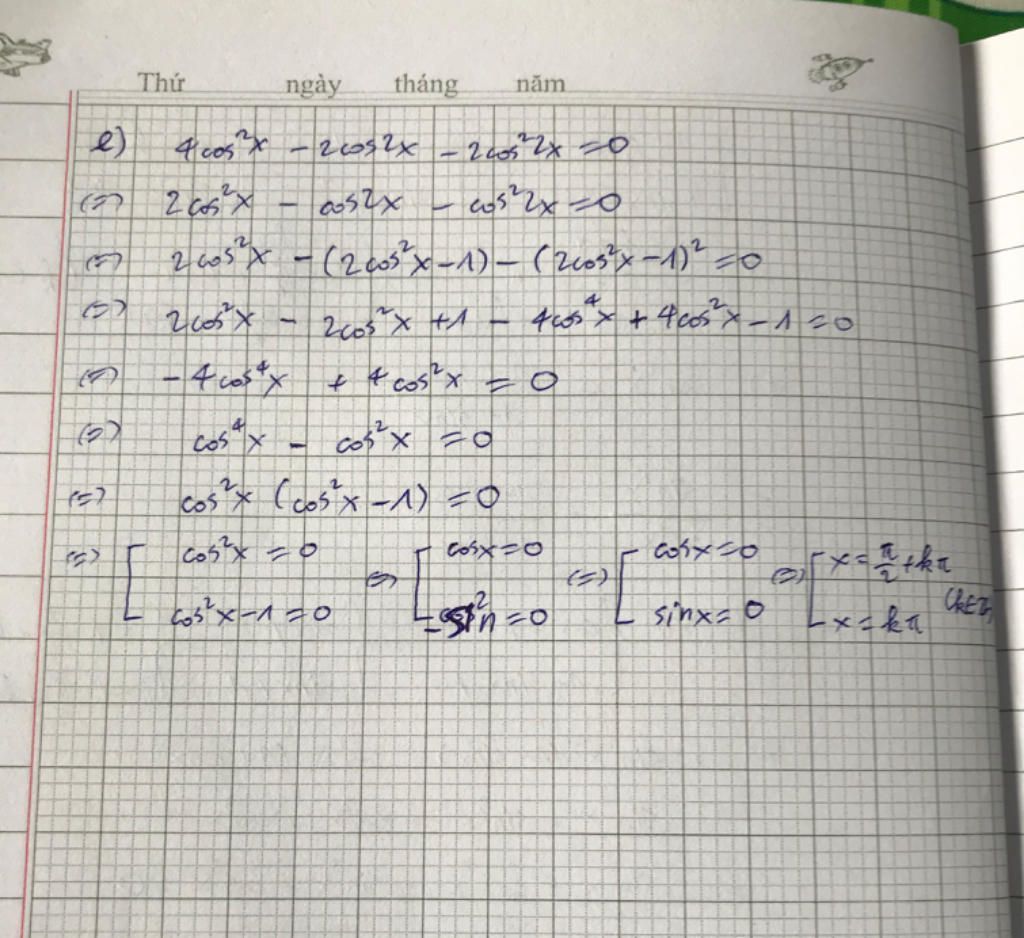 Thứ ngày tháng năm
e) 4cos²x - 2cos2x - 2cos²2x = 0
(=) 2cos²x - cos2x - cos²2x = 0
(=) 2cos²x - (2cos²x - 1) - (2cos²x - 1)² = 0
(=) 2cos²x - 2cos²x + 1 - 4cos⁴x + 4cos²x - 1 = 0
(=) -4cos⁴x + 4cos²x = 0
(=) cos⁴x - cos²x = 0
(=) cos²x (cos²x - 1) = 0
(=) [ cos²x = 0 (=) [ cosx = 0 (=) [ cosx = 0 (=) [ x = π/2 + kπ
cos²x - 1 = 0 -sin² = 0 sinx = 0 x = kπ (k∈Z)